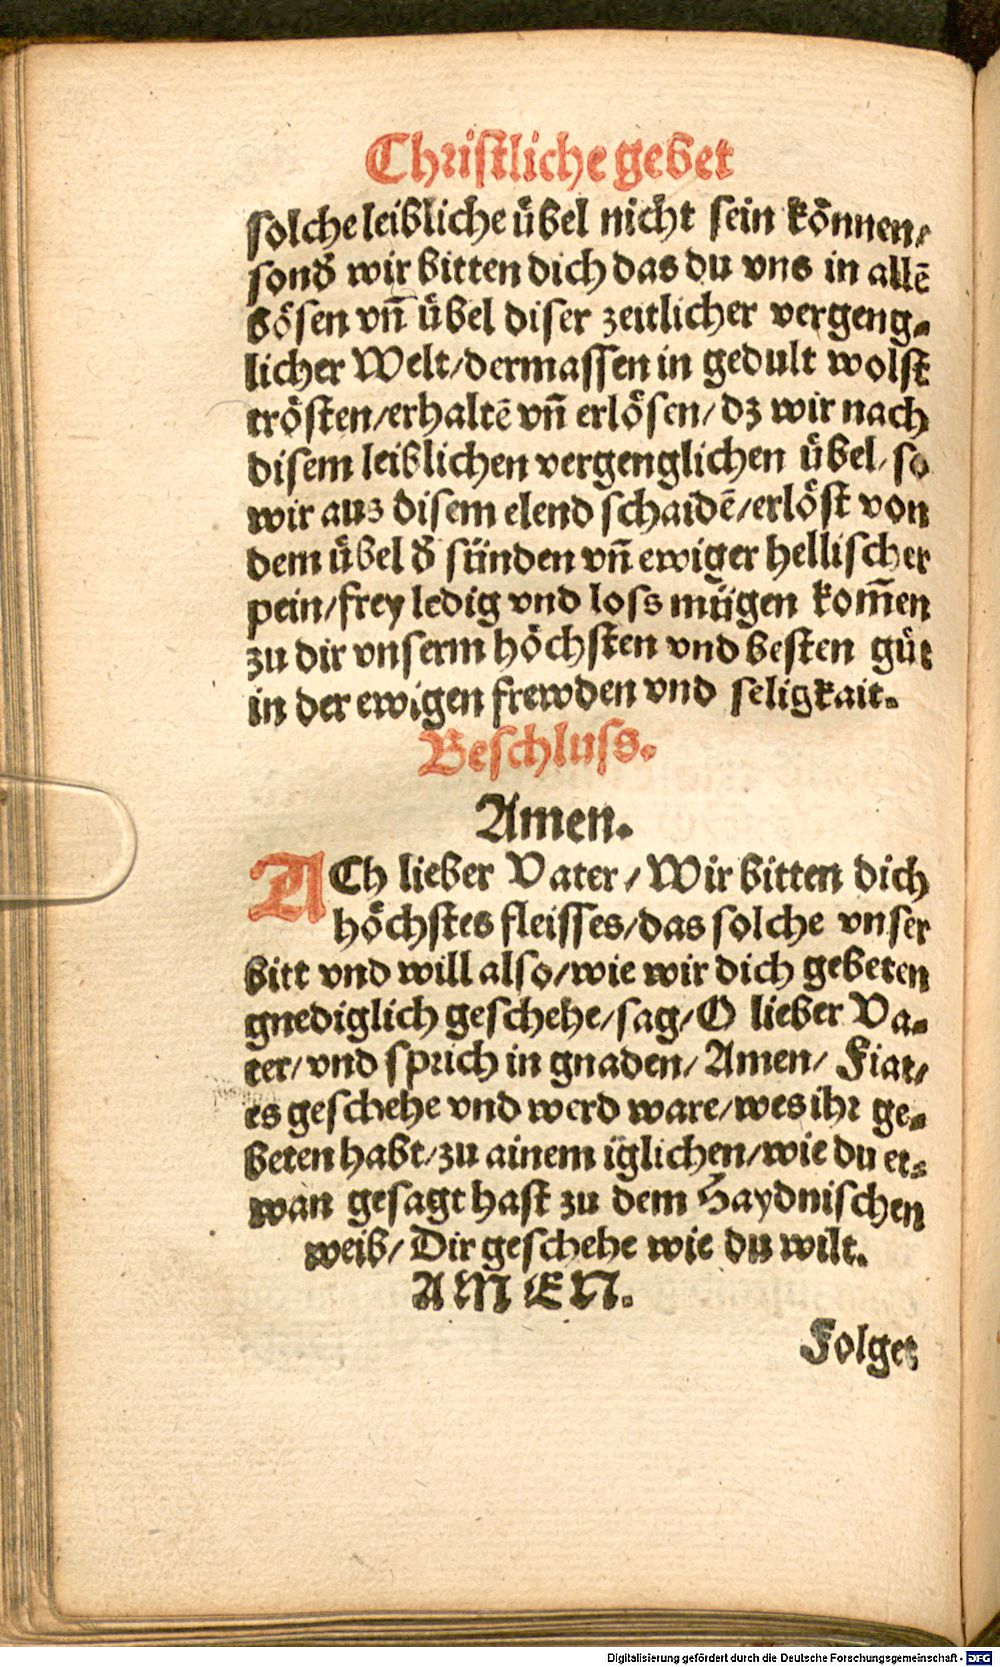 Christliche gebet
solche leibliche übel nicht sein können/
sonđ wir bitten dich das du vns in allē
bösen vñ übel diser zeitlicher vergeng⸗
licher Welt/dermassen in gedult wolst
trösten/erhaltē vñ erlösen/dz wir nach
disem leiblichen vergenglichen übel/so
wir ausz disem elend schaidē/erlöst von
dem übel đ sünden vñ ewiger hellischer
pein/frey ledig vnd loss mügen kom̃en
zu dir vnserm höchsten vnd besten güt
in der ewigen frewden vnd seligkait.
Beschluss.
Amen.
ACh lieber Vater/Wir bitten dich
höchstes fleisses/das solche vnser
bitt vnd will also/wie wir dich gebeten
gnediglich geschehe/sag/O lieber Va⸗
ter/vnd sprich in gnaden/Amen/Fiat/
es geschehe vnd werd ware/wes ihr ge⸗
beten habt/zu ainem iglichen/wie du et⸗
wan gesagt hast zu dem Haydnischen
weib/Dir geschehe wie du wilt.
AMEN.
Folget
Digitalisierung gefördert durch die Deutsche Forschungsgemeinschaft - DFG